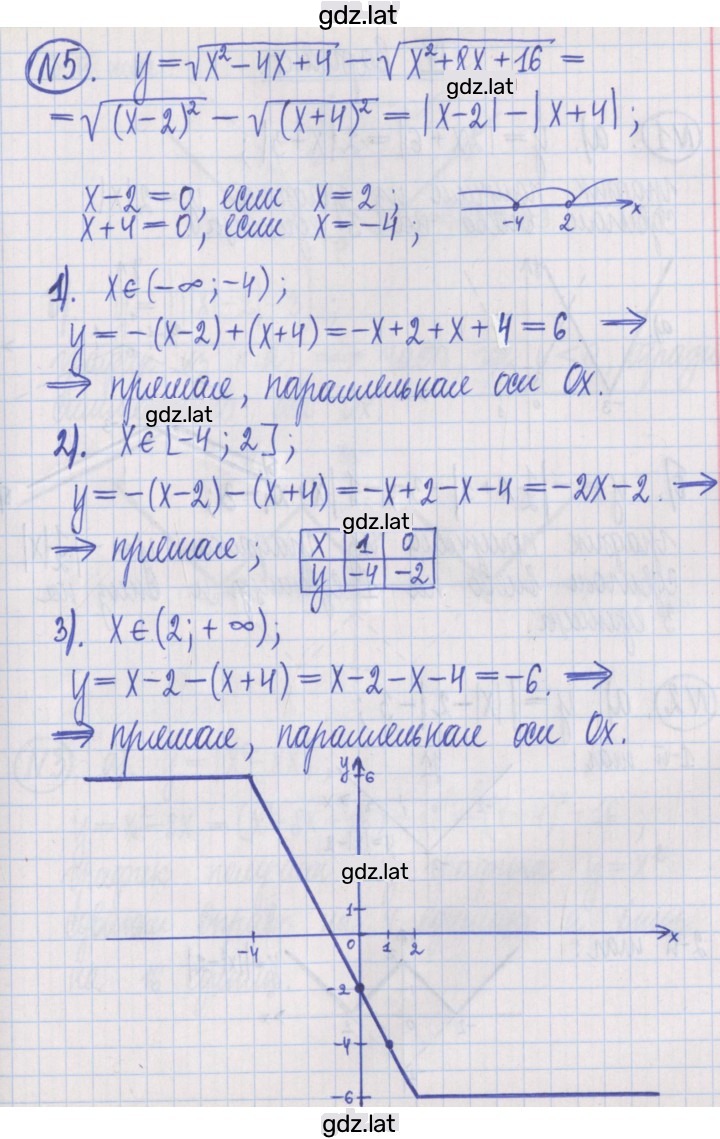 gdz.lat
№5. y = √(x² − 4x + 4) − √(x² + 8x + 16) =
gdz.lat
= √((x−2)²) − √((x+4)²) = |x−2| − |x+4| ;
x−2 = 0, если x = 2 ;
x+4 = 0, если x = −4 ;
−4 2 x
1). x ∈ (−∞ ; −4) ;
y = −(x−2) + (x+4) = −x + 2 + x + 4 = 6. ⟹
⟹ прямая, параллельная оси Ox.
gdz.lat
2). x ∈ [−4 ; 2] ;
y = −(x−2) − (x+4) = −x + 2 − x − 4 = −2x − 2. ⟹
gdz.lat
⟹ прямая ;
x 1 0
y −4 −2
3). x ∈ (2 ; +∞) ;
y = x − 2 − (x+4) = x − 2 − x − 4 = −6. ⟹
⟹ прямая, параллельная оси Ox.
y 6
gdz.lat
1
−4 0 1 2 x
−2
−4
−6
gdz.lat